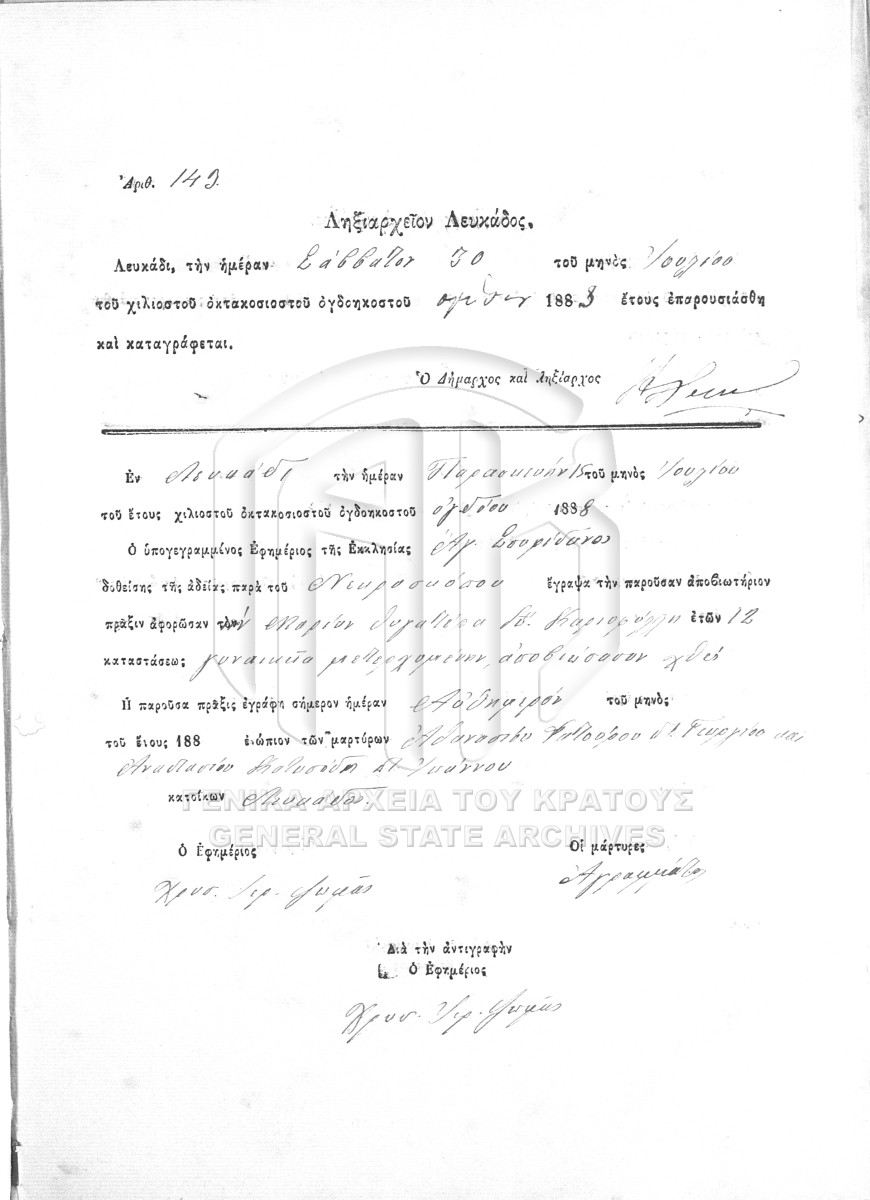 Ἀριθ. 149.
Ληξιαρχεῖον Λευκάδος.
Λευκάδι, τὴν ἡμέραν Σάββατον 30 τοῦ μηνὸς Ἰουλίου
τοῦ χιλιοστοῦ ὀκτακοσιοστοῦ ὀγδοηκοστοῦ ὀγδόου 1888 ἔτους ἐπαρουσιάσθη
καὶ καταγράφεται.
Ὁ Δήμαρχος καὶ Ληξίαρχος
Ἐν Λευκάδι τὴν ἡμέραν Παρασκευὴν 15 τοῦ μηνὸς Ἰουλίου
τοῦ ἔτους χιλιοστοῦ ὀκτακοσιοστοῦ ὀγδοηκοστοῦ ὀγδόου 1888
Ὁ ὑπογεγραμμένος Ἐφημέριος τῆς Ἐκκλησίας Ἁγ. Σπυρίδωνος
δοθείσης τῆς ἀδείας παρὰ τοῦ Νεκροσκόπου ἔγραψα τὴν παροῦσαν ἀποβιωτήριον
πρᾶξιν ἀφορῶσαν τὴν Μαρίαν θυγατέρα ἐτῶν 12
καταστάσεως μετερχομένην, ἀποβιώσασαν χθὲς
Ἡ παροῦσα πρᾶξις ἐγράφη σήμερον ἡμέραν Αὐθημερὸν τοῦ μηνὸς
τοῦ ἔτους 188 ἐνώπιον τῶν μαρτύρων Ἀθανασίου Γεωργίου καὶ
Ἀναστασίου Ἰωάννου
κατοίκων Λευκάδος.
ΓΕΝΙΚΑ ΑΡΧΕΙΑ ΤΟΥ ΚΡΑΤΟΥΣ
GENERAL STATE ARCHIVES
Ὁ Ἐφημέριος
Οἱ μάρτυρες
Χρυσ. Ἱερ. Θωμᾶς
Ἀγράμματοι
Διὰ τὴν ἀντιγραφὴν
Ὁ Ἐφημέριος
Χρυσ. Ἱερ. Θωμᾶς